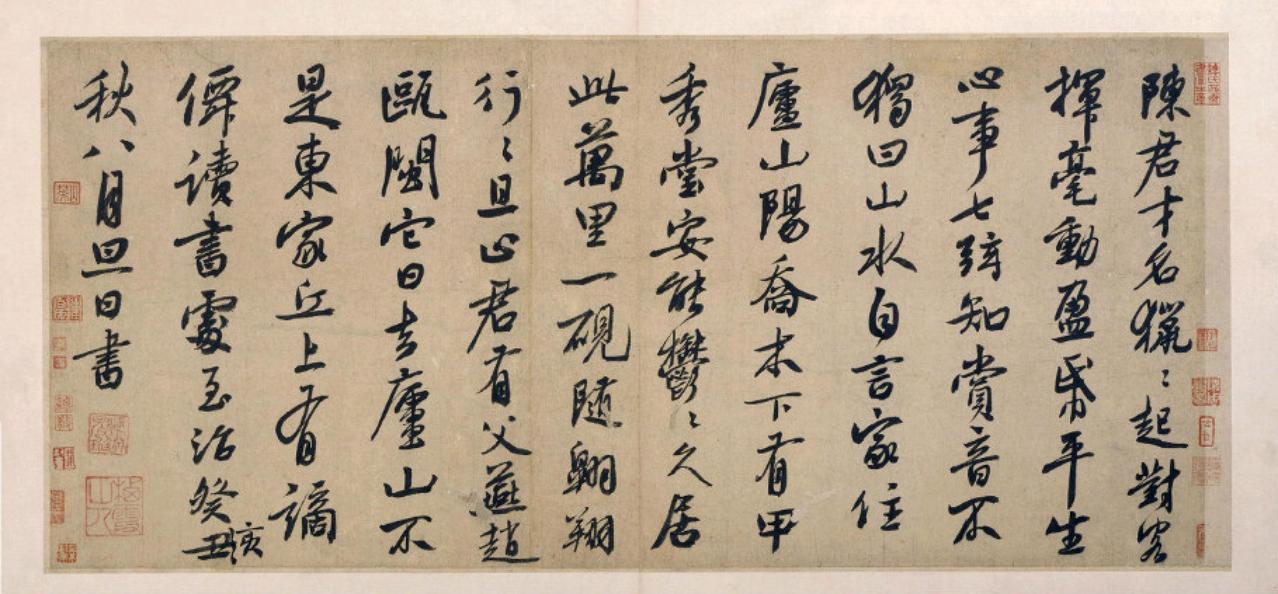 陳君才名獵〻起對客
揮毫動盈昏平生
心事七弦知賞音不
獨曰山水自言家住
廬山陽喬木下有甲
秀堂安能鬱〻久居
此萬里一硯隨翱翔
行〻且止君有父燕趙
甌閩它日去廬山不
是東家丘上有謫
僊讀書處至治癸丑亥
秋八月旦日書